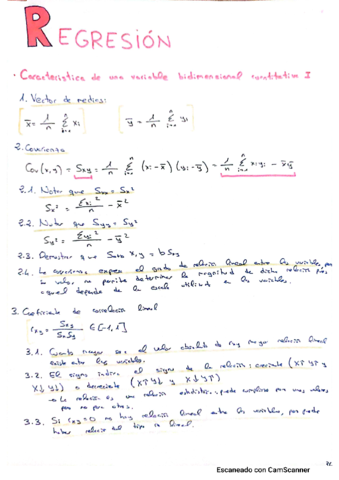 REGRESIÓN
• Característica de una variable bidimensional cuantitativa I
1. Vector de medias:
x̄ = 1/n Σ xi    ȳ = 1/n Σ yi
2. Covarianza
Cov(x,y) = Sxy = 1/n Σ (xi - x̄)(yi - ȳ) = 1/n Σ xi yi - x̄ȳ
2.1. Notar que Sxx = Sx²
Sx² = Σxi²/n - x̄²
2.2. Notar que Syy = Sy²
Sy² = Σyi²/n - ȳ²
2.3. Demostrar que x,y = b Sxy
2.4. La covarianza expresa el grado de relación lineal entre las variables, pero
su valor, no permite determinar la magnitud de dicha relación pues
es igual depende de la escala utilizada en las variables.
3. Coeficiente de correlación lineal
rxy = Sxy/SxSy ∈ [-1,1]
3.1. Cuanto mayor sea el valor absoluto de rxy mayor relación lineal
existe entre las variables.
3.2. El signo indica el signo de la relación: creciente (x↑ y↑ y
x↓ y↓) o decreciente (x↑ y↓ y x↓ y↑)
La relación es una relación estadística: puede cumplirse para unos valores
pero no para otros.
3.3. Si rxy = 0 no hay relación lineal entre las variables, pero puede
haber relación de tipo no lineal.
Escaneado con CamScanner